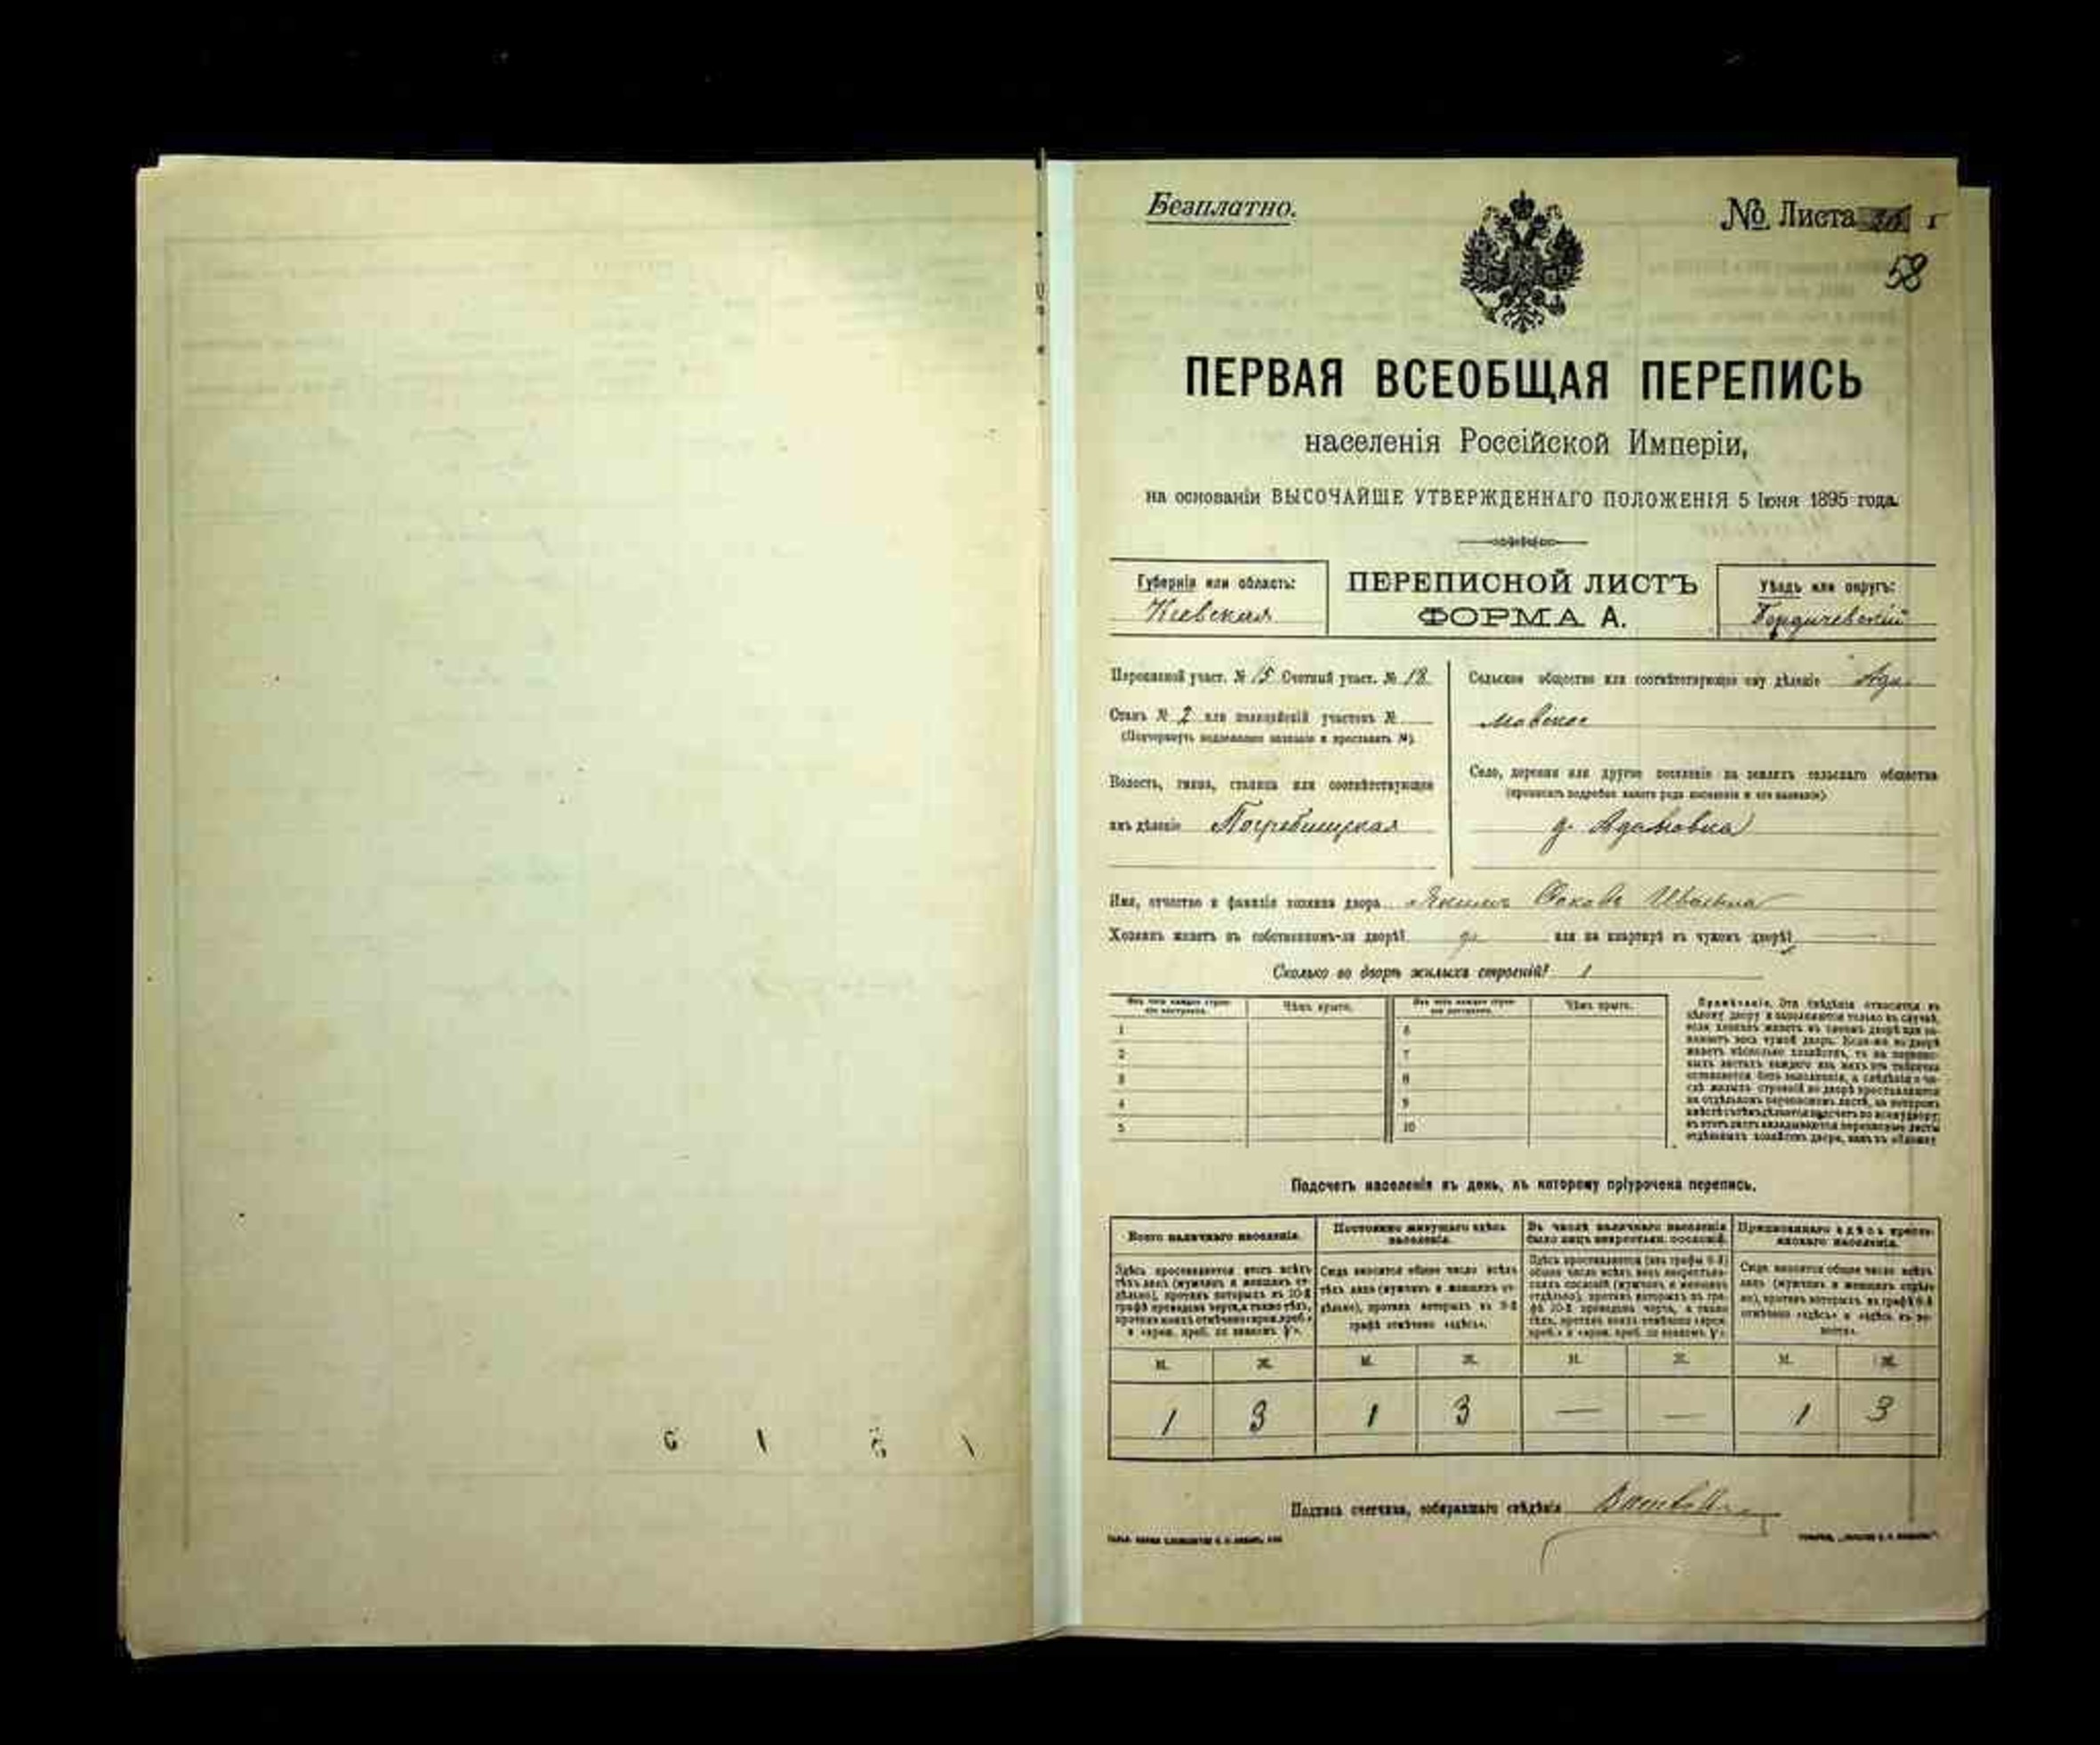 Безплатно.
№ Листа
58
ПЕРВАЯ ВСЕОБЩАЯ ПЕРЕПИСЬ
населенія Россійской Имперіи,
на основаніи ВЫСОЧАЙШЕ УТВЕРЖДЕННАГО ПОЛОЖЕНІЯ 5 Іюня 1895 года.
Губернія или область:
Кіевская
ПЕРЕПИСНОЙ ЛИСТЪ
ФОРМА А.
Уѣздъ или округъ:
Бердичевскій
Переписной участ. № 15 Счетный участ. № 18
Станъ № 2 или полицейскій участокъ №
(Подчеркнуть подлежащее названіе и проставить №).
Волость, гмина, станица или соотвѣтствующее
имъ дѣленіе Погребищская
Сельское общество или соотвѣтствующее ему дѣленіе Ада-
мовское
Село, деревня или другое поселеніе на земляхъ сельскаго общества
(прописать подробно какого рода поселеніе и его названіе)
д. Адамовка
Имя, отчество и фамилія хозяина двора
Хозяинъ живетъ въ собственномъ-ли дворѣ? да или на квартирѣ въ чужомъ дворѣ?
Сколько во дворѣ жилыхъ строеній? 1
Изъ чего каждое строе-
ніе построено.
Чѣмъ крыто.
Изъ чего каждое строе-
ніе построено.
Чѣмъ крыто.
1 6
2 7
3 8
4 9
5 10
Примѣчаніе. Эти свѣдѣнія относятся къ
цѣлому двору и заполняются только въ случаѣ,
если хозяинъ живетъ въ своемъ дворѣ или за-
нимаетъ весь чужой дворъ. Если-же во дворѣ
живетъ нѣсколько хозяйствъ, то на перепис-
ныхъ листахъ каждаго изъ нихъ эта табличка
оставляется безъ заполненія, а свѣдѣнія о чи-
слѣ жилыхъ строеній во дворѣ проставляются
на отдѣльномъ переписномъ листѣ, на которомъ
вмѣстѣ съ тѣмъ дѣлается подсчетъ по всему двору;
въ этотъ листъ вкладываются переписные листы
отдѣльныхъ хозяйствъ двора, какъ въ обложку
Подсчетъ населенія въ день, къ которому пріурочена перепись.
Всего наличнаго населенія.
Здѣсь проставляется итогъ всѣхъ
тѣхъ лицъ (мужчинъ и женщинъ от-
дѣльно), противъ которыхъ въ 10-й
графѣ проведена черта, а также тѣхъ,
противъ коихъ отмѣчено «врем. преб.»
Постоянно живущаго здѣсь
населенія.
Сюда вносится общее число всѣхъ
тѣхъ лицъ (мужчинъ и женщинъ от-
дѣльно), противъ которыхъ въ 9-й
графѣ отмѣчено «здѣсь».
Въ числѣ наличнаго населенія
было лицъ некрестьян. сословій.
Здѣсь проставляется (изъ графы 4-й)
общее число всѣхъ лицъ некрестьян-
скихъ сословій (мужчинъ и женщинъ
отдѣльно), противъ которыхъ въ гра-
фѣ 10-й проведена черта, а также
тѣхъ, противъ коихъ отмѣчено «врем.
Приписаннаго здѣсь кресть-
янскаго населенія.
Сюда вносится общее число всѣхъ
лицъ (мужчинъ и женщинъ отдѣль-
но), противъ которыхъ въ графѣ 8-й
отмѣчено «здѣсь» и «здѣсь въ во-
лости».
М. Ж. М. Ж. М. Ж. М. Ж.
1 3 1 3 — — 1 3
Подпись счетчика, собиравшаго свѣдѣнія